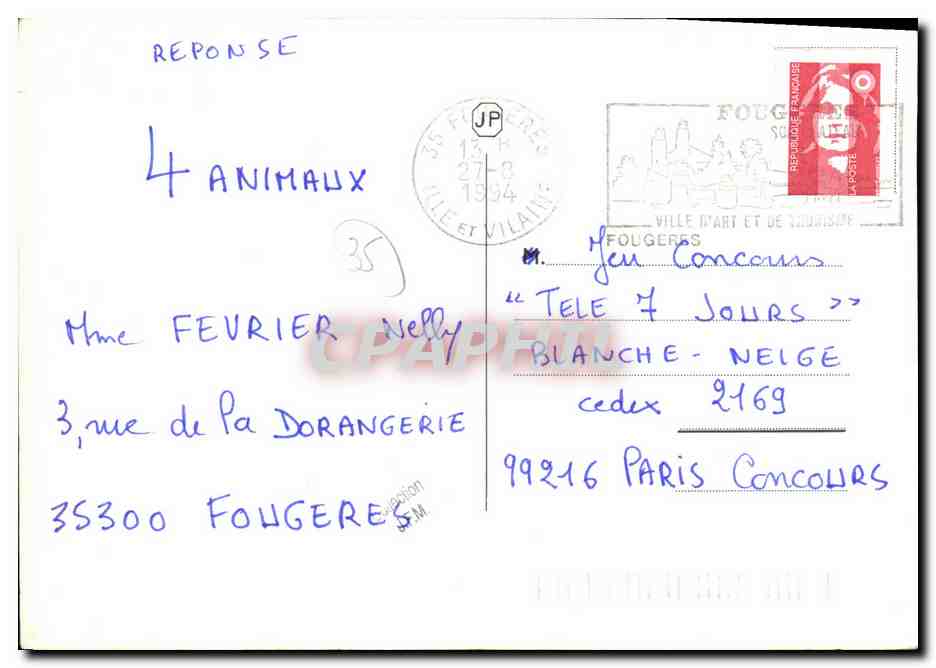 REPONSE
4 ANIMAUX
35
Mme FEVRIER Nelly
3, rue de la DORANGERIE
35300 FOUGERES
JP
35 FOUGERES
13 H
27-8
1994
ILLE ET VILAINE
FOUGERES
VILLE D'ART ET DE TOURISME
FOUGERES
REPUBLIQUE FRANÇAISE
LA POSTE
M. Jeu Concours
"TELE 7 JOURS"
BLANCHE-NEIGE
cedex 2169
99216 PARIS CONCOURS
CPAPHIL
J.F.M